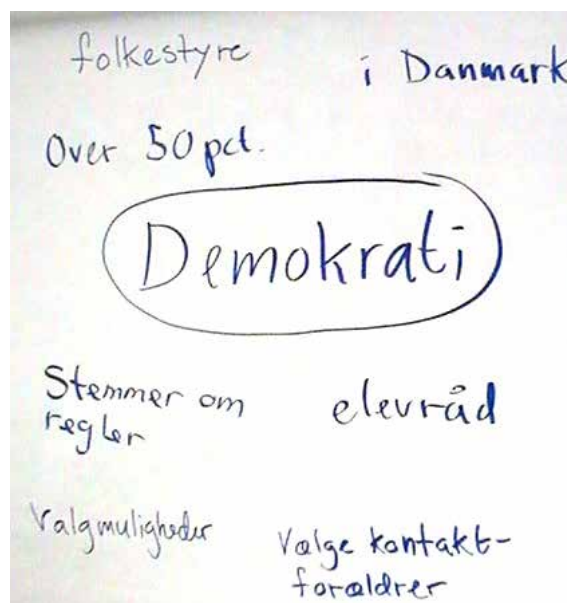 folkestyre
i Danmark
Over 50 pct.
Demokrati
Stemmer om
regler
elevråd
Valgmuligheder
Vælge kontakt-
forældrer